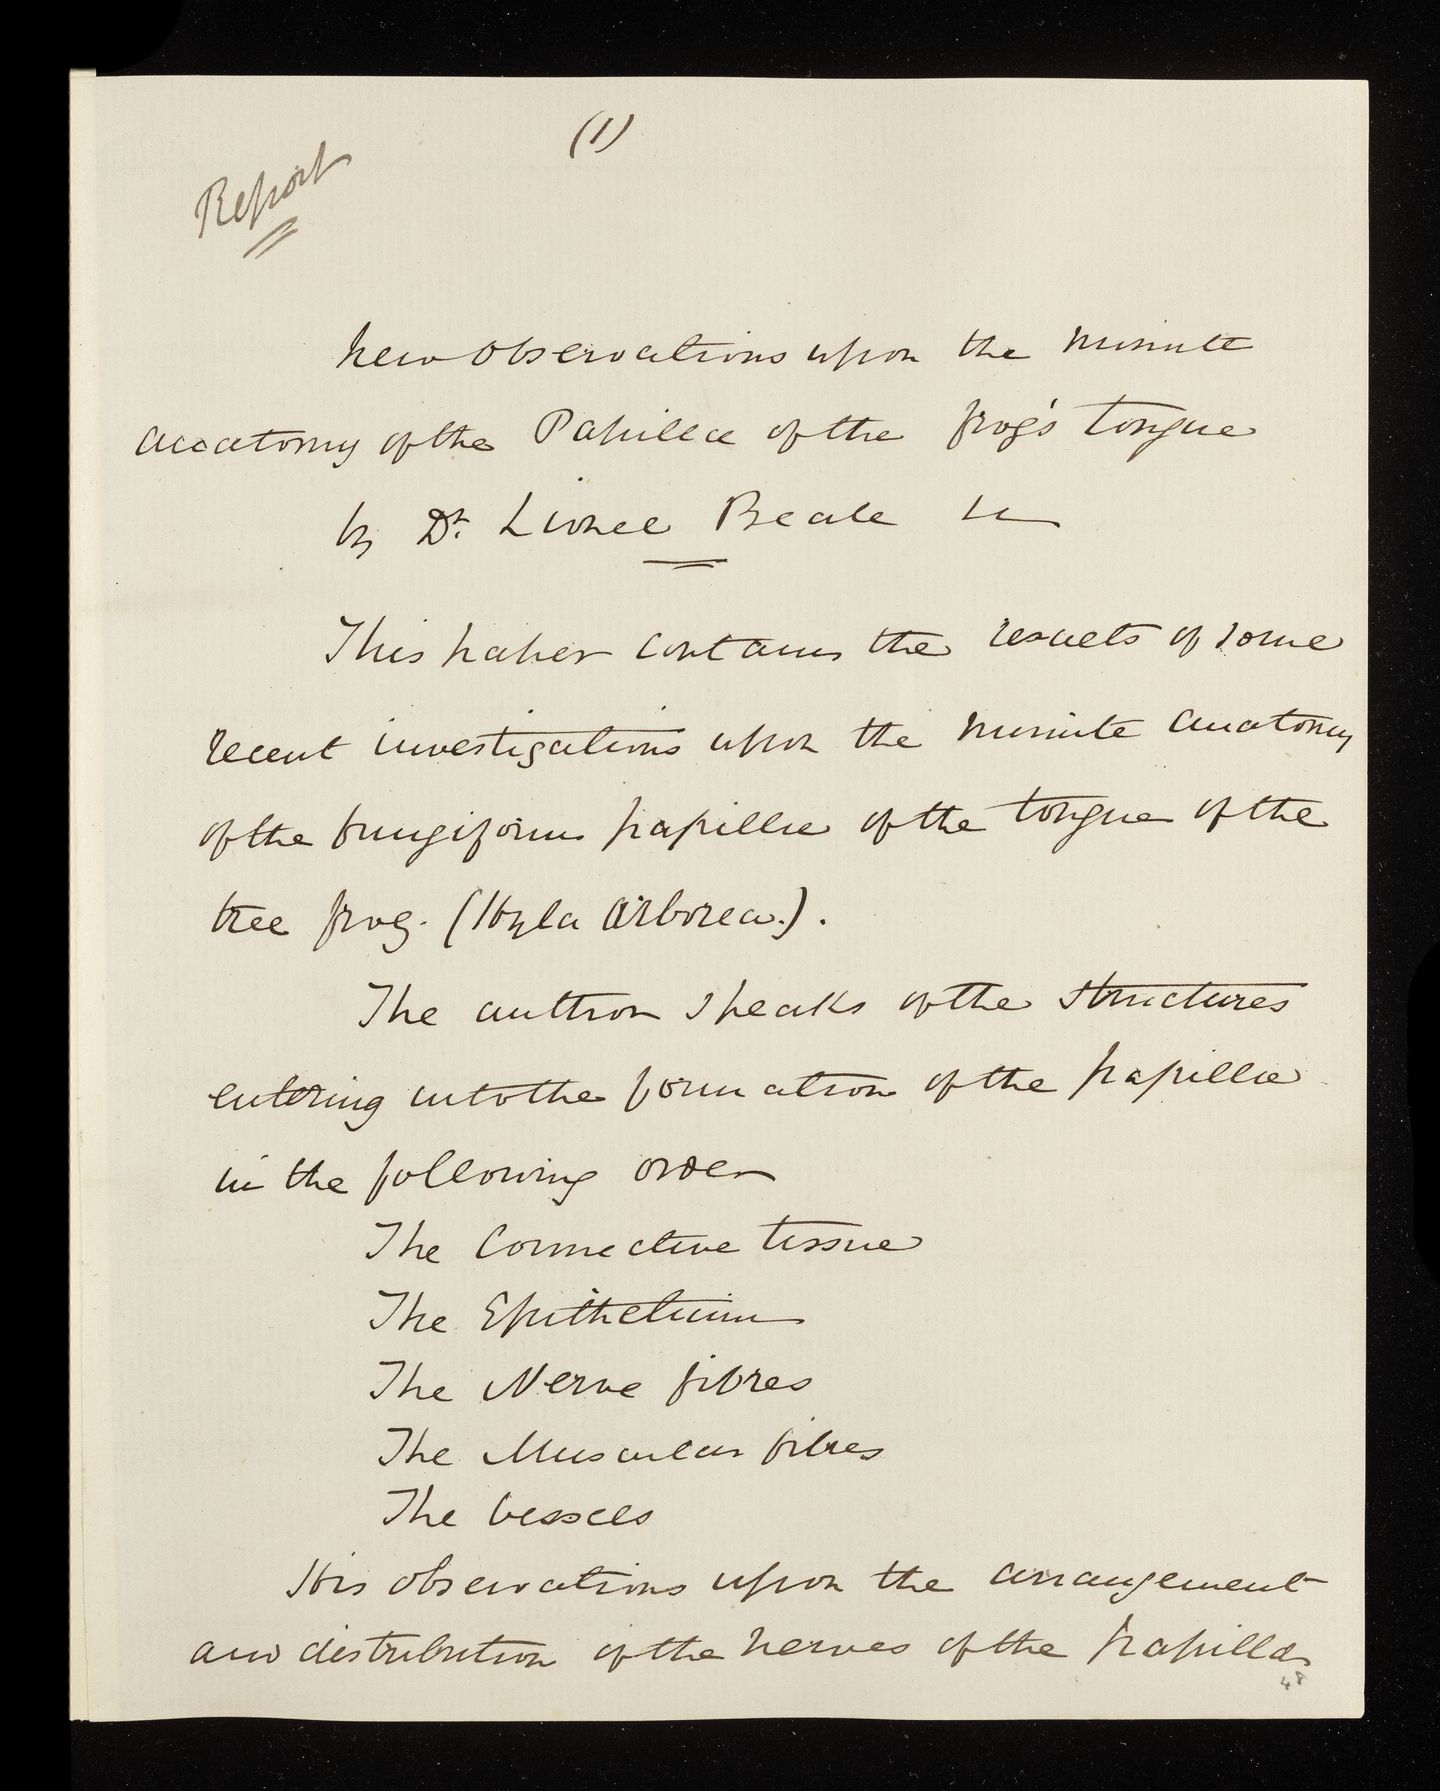 (1)
Report
New observations upon the minute
anatomy of the Papillæ of the frog's tongue
by Dr. Lionel Beale
This paper contains the results of some
recent investigations upon the minute anatomy
of the fungiform papillæ of the tongue of the
tree frog. (Hyla Arborea.).
The author speaks of the structures
entering into the formation of the papillæ
in the following order
The Connective tissue
The Epithelium
The Nerve fibres
The Muscular fibres
The vessels
His observations upon the arrangement
and distribution of the nerves of the papillæ
48